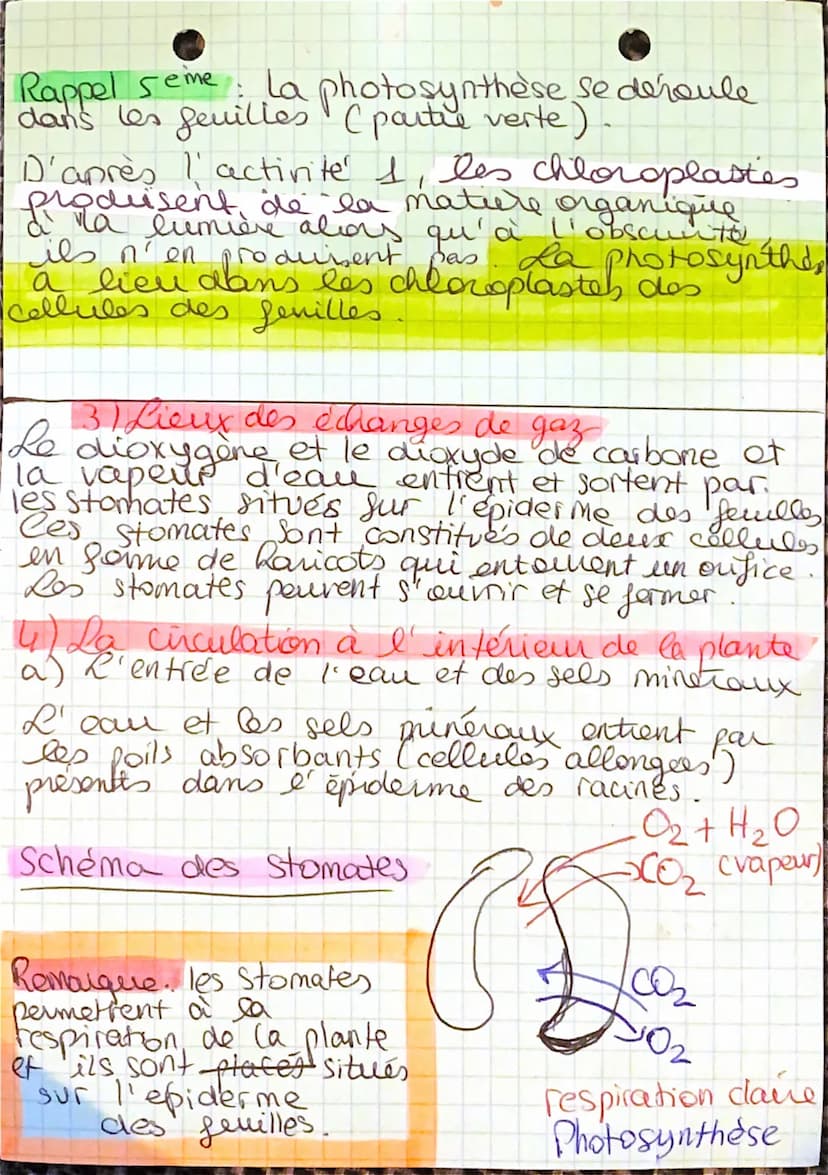 Rappel 5eme : La photosynthèse se déroule
dans les feuilles (partie verte).
D'après l'activité 1, les chloroplastes
produisent de la matière organique
à la lumière alors qu'à l'obscurité,
ils n'en produisent pas. La photosynthès
a lieu dans les chloroplastes des
cellules des feuilles.
3) Lieux des échanges de gaz
Le dioxygène et le dioxyde de carbone et
la vapeur d'eau entrent et sortent par
les stomates situés sur l'épiderme des feuilles
Ces stomates sont constitués de deux cellules
en forme de haricots qui entourent un orifice.
Les stomates peuvent s'ouvrir et se fermer.
4) La circulation à l'intérieur de la plante
a) L'entrée de l'eau et des sels minéraux
L'eau et les sels minéraux entrent par
les poils absorbants (cellules allongées)
présents dans l'épiderme des racines.
Schéma des stomates
O2 + H2O
CO2 (vapeur)
CO2
O2
respiration claire
Photosynthèse
Remarque. les stomates
permettent à la
respiration de la plante
et ils sont placés situés
sur l'epiderme
des feuilles.